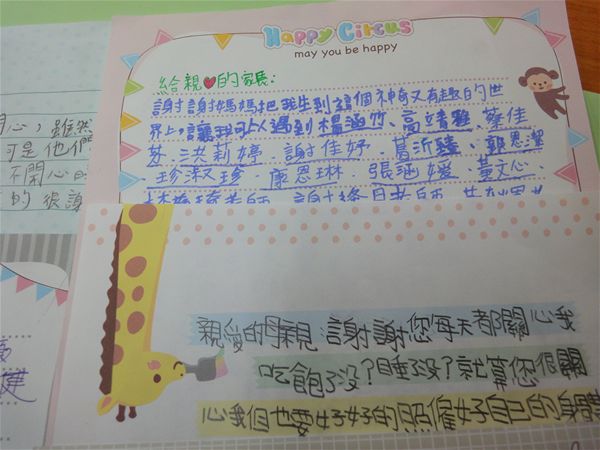 Happy Circus
may you be happy
給親❤的家長:
謝謝媽媽把我生到這個神奇又有趣的世
界上,讓我可以遇到楊涵竹、高靖雅、蔡佳
芬、洪莉婷、謝佳妤、葛沂臻、郭恩潔
、珍淑珍、康恩琳、張涵媛、黃文心
心,雖然
可是他們
不開心的
的很謝
親愛的母親:謝謝您每天都關心我
吃飽了沒?睡沒了就算您很關
心我但也要好好的照偏好自己的身體
健